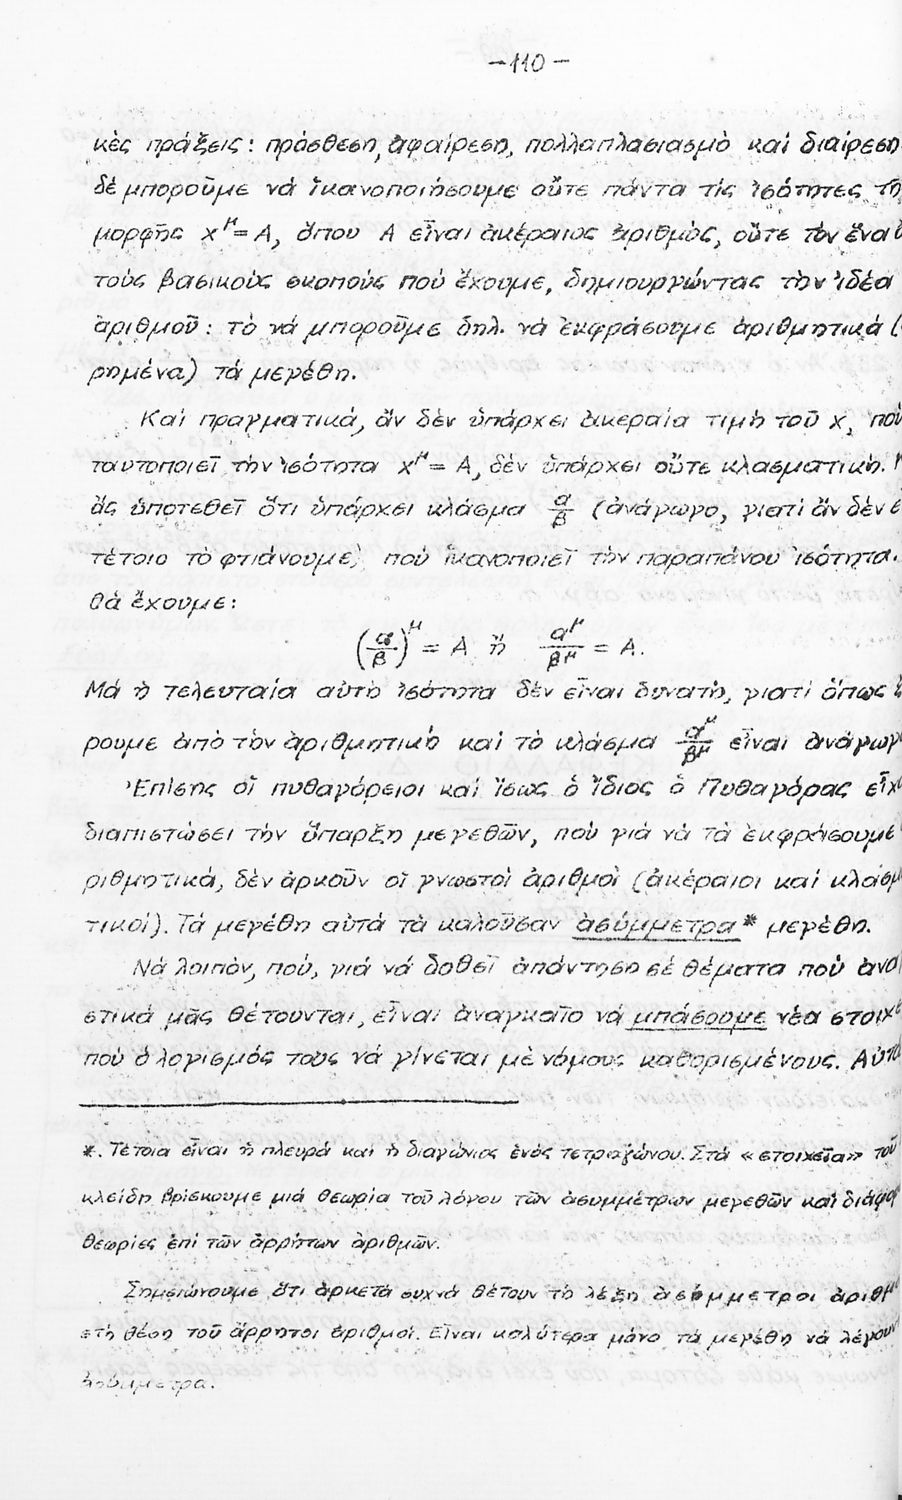 -110-
κὲς πράξεις: πρόσθεση, ἀφαίρεση, πολλαπλασιασμὸ καὶ διαίρεση
δὲ μποροῦμε νὰ ἱκανοποιήσουμε οὔτε πάντα τὶς ἰσότητες τῆ
μορφῆς x^μ = A, ὅπου A εἶναι ἀκέραιος ἀριθμός, οὔτε τὸν ἕνα
τοὺς βασικοὺς σκοποὺς ποὺ ἔχουμε, δημιουργώντας τὴν ἰδέα
ἀριθμοῦ: τὸ νά μποροῦμε δηλ. νὰ ἐκφράσουμε ἀριθμητικά (
ρημένα) τά μεγέθη.
Καὶ πραγματικά, ἄν δὲν ὑπάρχει ἀκεραία τιμὴ τοῦ x, ποὺ
ταυτοποιεῖ τὴν ἰσότητα x^μ = A, δέν ὑπάρχει οὔτε κλασματική.
ἄς ὑποτεθεῖ ὅτι ὑπάρχει κλάσμα α/β (ἀνάγωγο, γιατί ἄν δὲν ε
τέτοιο τὸ φτιάνουμε) ποὺ ἱκανοποιεῖ τὴν παραπάνου ἰσότητα.
θὰ ἔχουμε:
(α/β)^μ = A ἤ α^μ/β^μ = A.
Μά ἡ τελευταία αὐτὴ ἰσότητα δὲν εἶναι δυνατή, γιατί ὅπως
ρουμε ἀπὸ τὸν ἀριθμητικὸ καὶ τὸ κλάσμα α^μ/β^μ εἶναι ἀνάγωγ
Ἐπίσης οἱ πυθαγόρειοι καί ἴσως ὁ ἴδιος ὁ Πυθαγόρας εἶχ
διαπιστώσει τὴν ὕπαρξη μεγεθῶν, ποὺ γιὰ νὰ τὰ ἐκφράσουμε
ριθμητικά, δὲν ἀρκοῦν οἱ γνωστοὶ ἀριθμοὶ (ἀκέραιοι καὶ κλασμ
τικοί). Τά μεγέθη αὐτά τὰ καλοῦσαν ἀσύμμετρα* μεγέθη.
Νὰ λοιπὸν, πού, γιά νά δοθεῖ ἀπάντηση σέ θέματα ποὺ ἀνα
στικά μᾶς θέτουνται, εἶναι ἀναγκαῖο νά μπάσουμε νέα στοιχε
ποὺ ὁ λογισμός τους νά γίνεται μὲ νόμους καθορισμένους. Αὐτὰ
*. Τέτοια εἶναι ἡ πλευρά καὶ ἡ διαγώνιος ἑνός τετραγώνου. Στά «στοιχεῖα» τοῦ
κλείδη βρίσκουμε μιά θεωρία τοῦ λόγου τῶν ἀσυμμέτρων μεγεθῶν καὶ διάφορ
θεωρίες ἐπὶ τῶν ἀρρήτων ἀριθμῶν.
Σημειώνουμε ὅτι ἀρκετά συχνά θέτουν τὴ λέξη ἀσύμμετροι ἀριθμ
στὴ θέση τοῦ ἄρρητοι ἀριθμοί. Εἶναι καλύτερα μόνο τά μεγέθη νὰ λέγουν
ἀσύμμετρα.